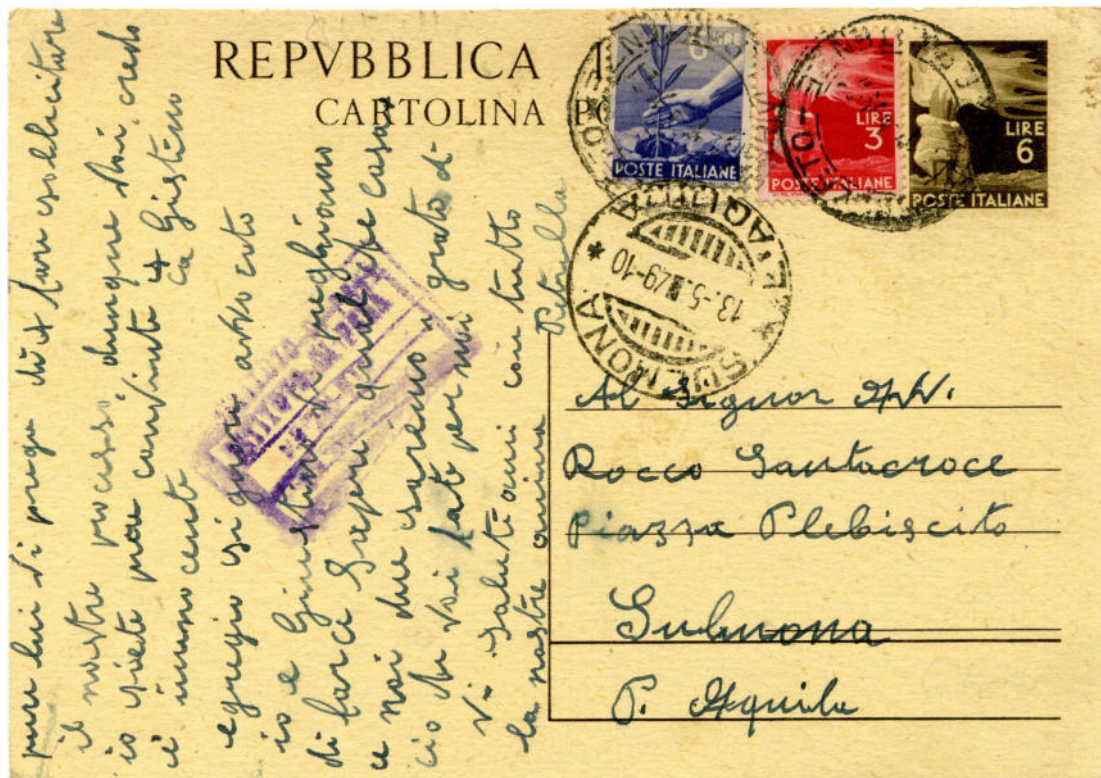 REPVBBLICA I
CARTOLINA P
6 LIRE
POSTE ITALIANE
LIRE
3
POSTE ITALIANE
LIRE
6
POSTE ITALIANE
SULMONA
L'AQUILA
13.-5. 49-10
Al Signor Avv.
Rocco Santacroce
Piazza Plebiscito
Sulmona
P. Aquila
pure lui vi prega di fare sollecitare
il nostre processo, dunque Voi, credo
io siete pure convinto Giustino
è innocente
egregio signore avvocato
io e Giustino vi preghiamo
di farci Sapere qualche casa
e noi due saremo grato di
cio da Voi fato per noi
Vi Salutiami con tutto
la nostre anima Petrella